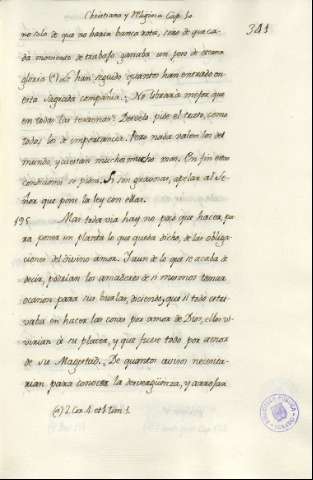 Christiano y Religioso Cap. 10
341
no solo de que no harán banca rota, sino de que ca
da momento de trabajo ganaba un peso de eterna
gloria (a) han seguido quantos han entrado en
esta sagrada compañia. No libraria mejor que
en todas las terrenas? Dévela pide el texto, como
todas las de importancia. Pero nada valen las del
mundo, y cuestan mucho mucho mas. En fin estas
condiciones se piden. Si son gravosas, apelar al Se
ñor que pone la ley con ellas.
195 Mas todavia hay no poco que hacer, pa
ra poner en planta lo que queda dicho, de las obliga
ciones del divino amor. Y aun de lo que se acaba de
decir, podrian los amadores de si mismos tomar
ocasion para sus burlas, diciendo, que si todo estri
vaba en hacer las cosas por amor de Dios, ellos vi
virian de su placer, y que fuese todo por amor
de su Magestad. De quantos avisos necesita
rian para conocer la desverguenza, y arrojar
(a) 2. Cor. 4. et 1. tim. 1.